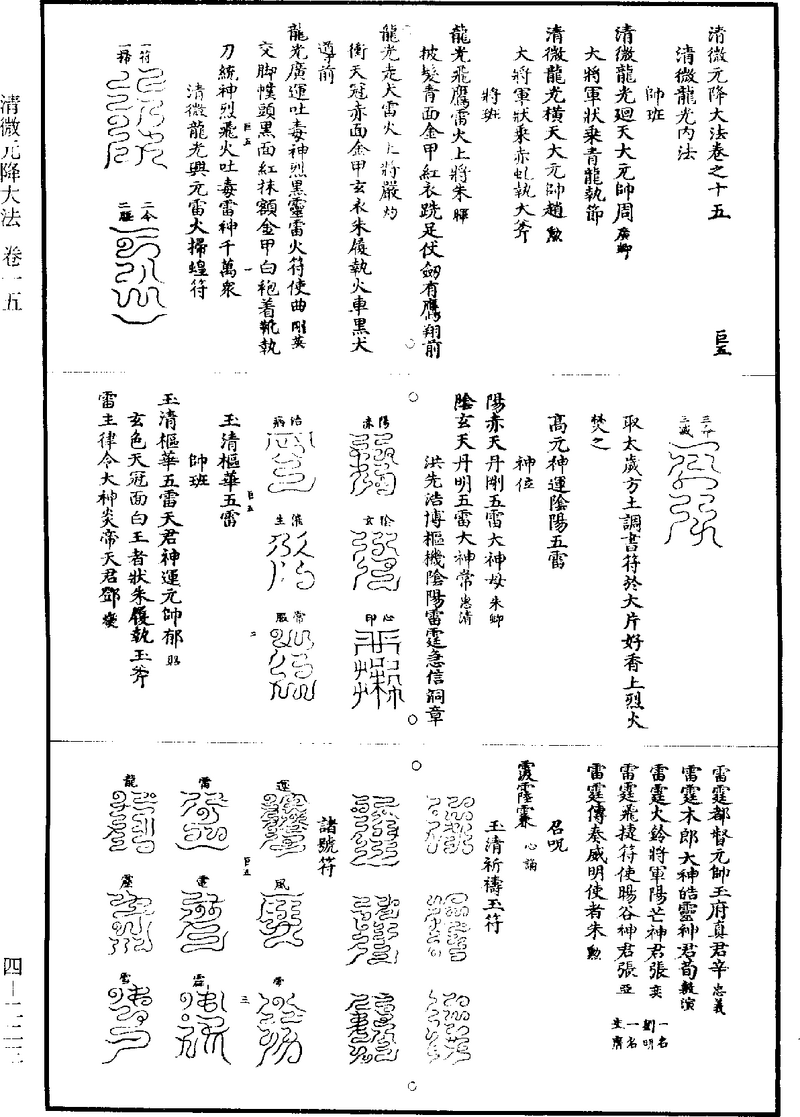 清微元降大法卷之十五 巨五
清微龍光內法
帥班
清微龍光廻天大元帥周廣卿
大將軍狀乘青龍執節
清微龍光橫天大元帥趙勲
大將軍狀乘赤虬執大斧
將班
龍光飛鷹雷火上將朱暉
披髮青面金甲紅衣跣足仗劒有鷹翔前
龍光走犬雷火上將嚴灼
衝天冠赤面金甲玄衣朱履執火車黑犬
導前
龍光廣運吐毒神烈黑靈雷火符使曲剛英
交脚幞頭黑面紅抹額金甲白袍着靴執
刀統神烈飛火吐毒雷神千萬衆
巨五 一
清微龍光興元雷火掃蝗符
一符
一掃
二令
二驅
三
三滅
取太歲方土調書符於大片好香上烈火
焚之
高元神運陰陽五雷
神位
陽赤天丹剛五雷大神毋朱卿
陰玄天丹明五雷大神常忠清
洪先浩博樞機陰陽雷霆急信洞章
陽赤
陰玄
心印
治病
催生
常服
巨五 二
玉清樞華五雷
帥班
玉清樞華五雷天君神運元帥郁
玄色天冠面白王者狀朱履執玉斧
雷主律令大神炎帝天君鄧燮
雷霆都督元帥玉府真君辛忠義
雷霆木郎大神皓靈神君荀
雷霆火鈴將軍陽芒神君張奕 一名劉明
雷霆飛捷符使暘谷神君張亞 一名
雷霆傳奏威明使者朱勲
召呪
心誦
玉清祈禱玉符
諸號符
運
風
帝
巨五 三
雷
電
霹
龍
雪
清微元降大法 卷一五
四—二二三